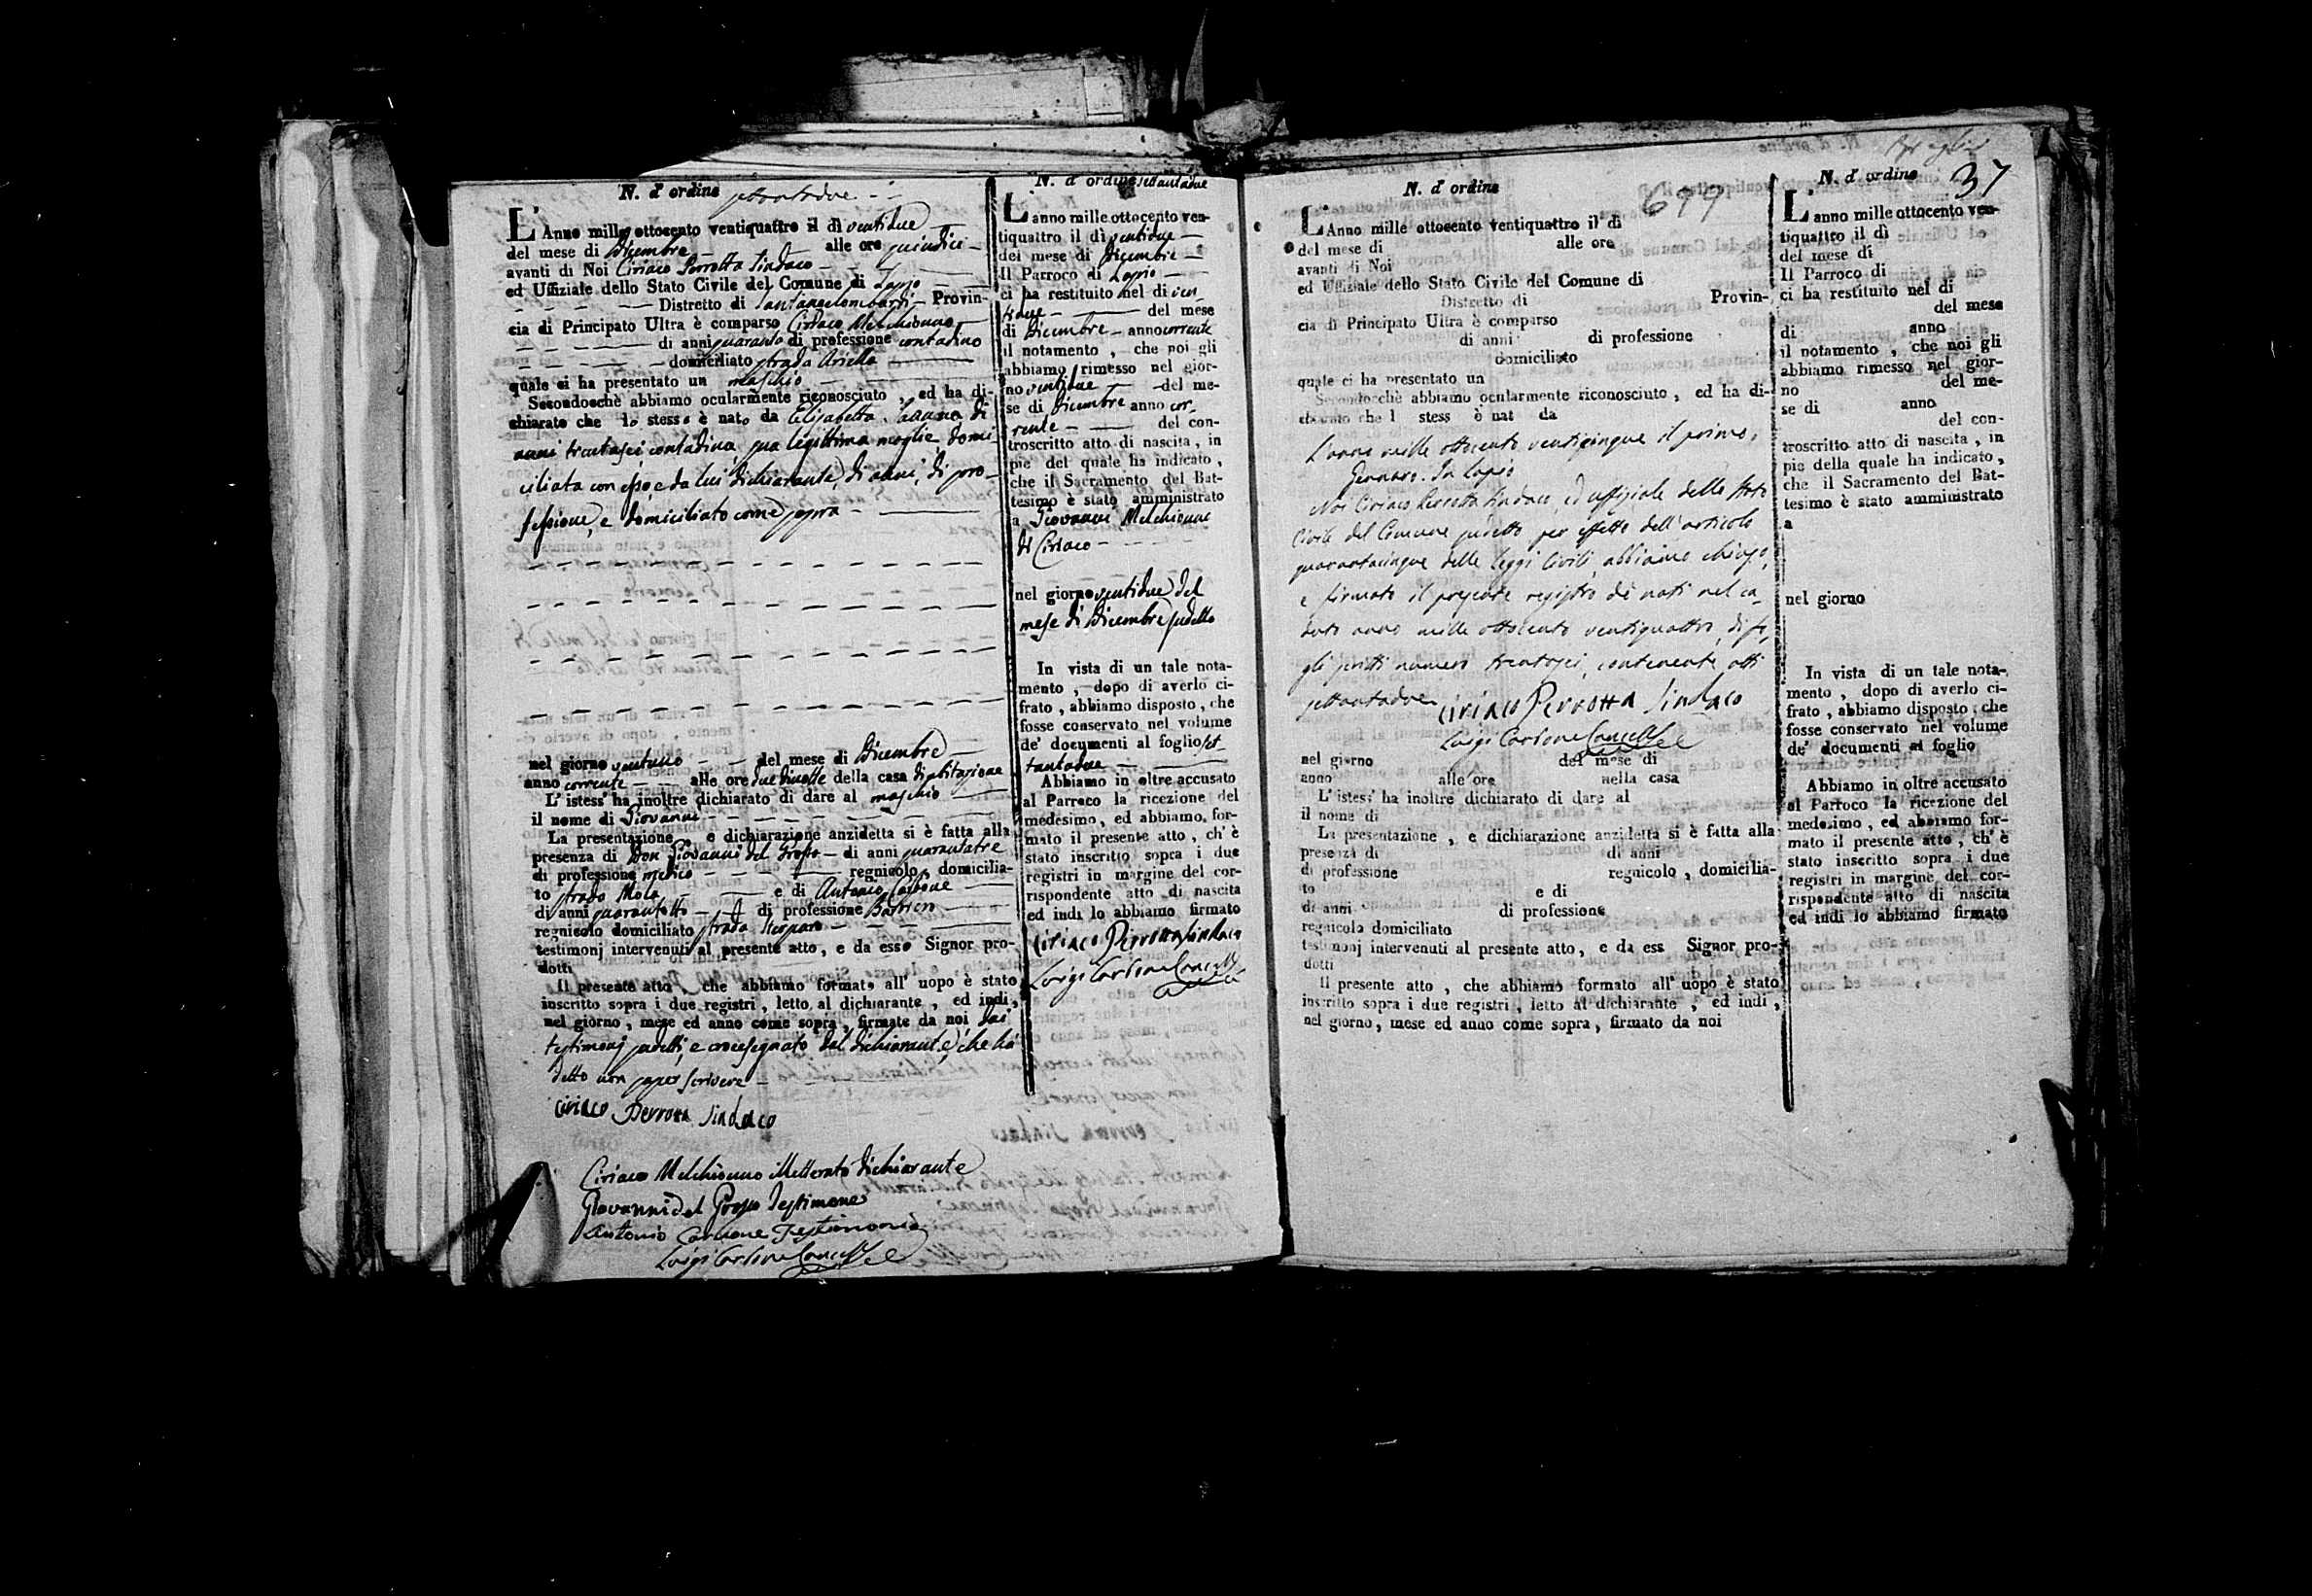 N. d'ordine settantadue
L'Anno mille ottocento ventiquattro il dì ventidue
del mese di Dicembre alle ore quindici
avanti di Noi Ciriaco Perrotta Sindaco
ed Uffiziale dello Stato Civile del Comune di Lapio
Distretto di Santangelombardi Provin-
cia di Principato Ultra è comparso Ciriaco Melchionno
di anni quaranta di professione contadino
domiciliato strada Ariella
quale ci ha presentato un maschio
Secondocchè abbiamo ocularmente riconosciuto, ed ha di-
chiarato che lo stesso è nato da Elisabetta di
anni trentasei contadina sua legittima moglie domi-
ciliata con esso, e da lui dichiarante, di anni, di pro-
fessione, e domiciliato come sopra
nel giorno ventuno del mese di Dicembre
anno corrente alle ore due di notte della casa di abitazione
L'istess' ha inoltre dichiarato di dare al maschio
il nome di Giovanni
La presentazione, e dichiarazione anzidetta si è fatta alla
presenza di Don Giovanni del Grosso di anni quarantatre
di professione medico regnicolo, domicilia-
to strada Mola e di Antonio Carbone
di anni quarantotto di professione
regnicolo domiciliato strada
testimonj intervenuti al presente atto, e da esso Signor pro-
dotti
Il presente atto, che abbiamo formato all'uopo è stato
inscritto sopra i due registri, letto al dichiarante, ed indi,
nel giorno, mese ed anno come sopra, firmato da noi, dai
testimonj sudetti, e crocesegnato dal dichiarante, che há
detto non saper scrivere
Ciriaco Perrotta Sindaco
Ciriaco Melchionno illetterato dichiarante
Giovanni del Grosso Testimone
Antonio Carbone Testimonio
Luigi Carbone Cancelle
N. d'ordine settantadue
L'anno mille ottocento ven-
tiquattro il dì ventidue
del mese di Dicembre
Il Parroco di Lapio
ci ha restituito nel di ven-
tidue del mese
di Dicembre anno corrente
il notamento, che noi gli
abbiamo rimesso nel gior-
no ventidue del me-
se di Dicembre anno cor-
rente del con-
troscritto atto di nascita, in
pie del quale ha indicato,
che il Sacramento del Bat-
tesimo è stato amministrato
a Giovanni Melchionno
di Ciriaco
nel giorno ventidue del
mese di Dicembre sudetto
In vista di un tale nota-
mento, dopo di averlo ci-
frato, abbiamo disposto, che
fosse conservato nel volume
de' documenti al foglio set-
tantadue
Abbiamo in oltre accusato
al Parroco la ricezione del
medesimo, ed abbiamo for-
mato il presente atto, ch'è
stato inscritto sopra i due
registri in margine del cor-
rispondente atto di nascita
ed indi lo abbiamo firmato
Ciriaco Perrotta Sindaco
Luigi Carbone Cancelle
N. d'ordine 699
L'Anno mille ottocento ventiquattro il dì
del mese di alle ore
avanti di Noi
ed Uffiziale dello Stato Civile del Comune di
Distretto di Provin-
cia di Principato Ultra è comparso
di anni di professione
domiciliato
quale ci ha presentato un
Secondocchè abbiamo ocularmente riconosciuto, ed ha di-
chiarato che l stess è nat da
L'anno mille ottocento venticinque il primo,
Gennaro. In Lapio
Noi Ciriaco Perrotta Sindaco, ed uffiziale dello Stato
Civile del Comune sudetto per effetto dell'articolo
quarantacinque delle leggi Civili, abbiamo chiuso,
e firmato il presente registro de' nati nel ca-
duto anno mille ottocento ventiquattro, di fo-
gli scritti numero trentasei, contenente atti
settantadue
Ciriaco Perrotta Sindaco
Luigi Carbone Cancelle
nel giorno del mese di
anno alle ore nella casa
L'istess' ha inoltre dichiarato di dare al
il nome di
La presentazione, e dichiarazione anzidetta si è fatta alla
presenza di di anni
di professione regnicolo, domicilia-
to e di
di anni di professione
regnicolo domiciliato
testimonj intervenuti al presente atto, e da ess Signor pro-
dotti
Il presente atto, che abbiamo formato all'uopo è stato
inscritto sopra i due registri, letto al dichiarante, ed indi,
nel giorno, mese ed anno come sopra, firmato da noi
37
N. d'ordine
L'anno mille ottocento ven-
tiquattro il dì
del mese di
Il Parroco di
ci ha restituito nel di
del mese
di anno
il notamento, che noi gli
abbiamo rimesso nel gior-
no del me-
se di anno
del con-
troscritto atto di nascita, in
pie della quale ha indicato,
che il Sacramento del Bat-
tesimo è stato amministrato
a
nel giorno
In vista di un tale nota-
mento, dopo di averlo ci-
frato, abbiamo disposto, che
fosse conservato nel volume
de' documenti al foglio
Abbiamo in oltre accusato
al Parroco la ricezione del
medesimo, ed abbiamo for-
mato il presente atto, ch'è
stato inscritto sopra i due
registri in margine del cor-
rispondente atto di nascita
ed indi lo abbiamo firmato